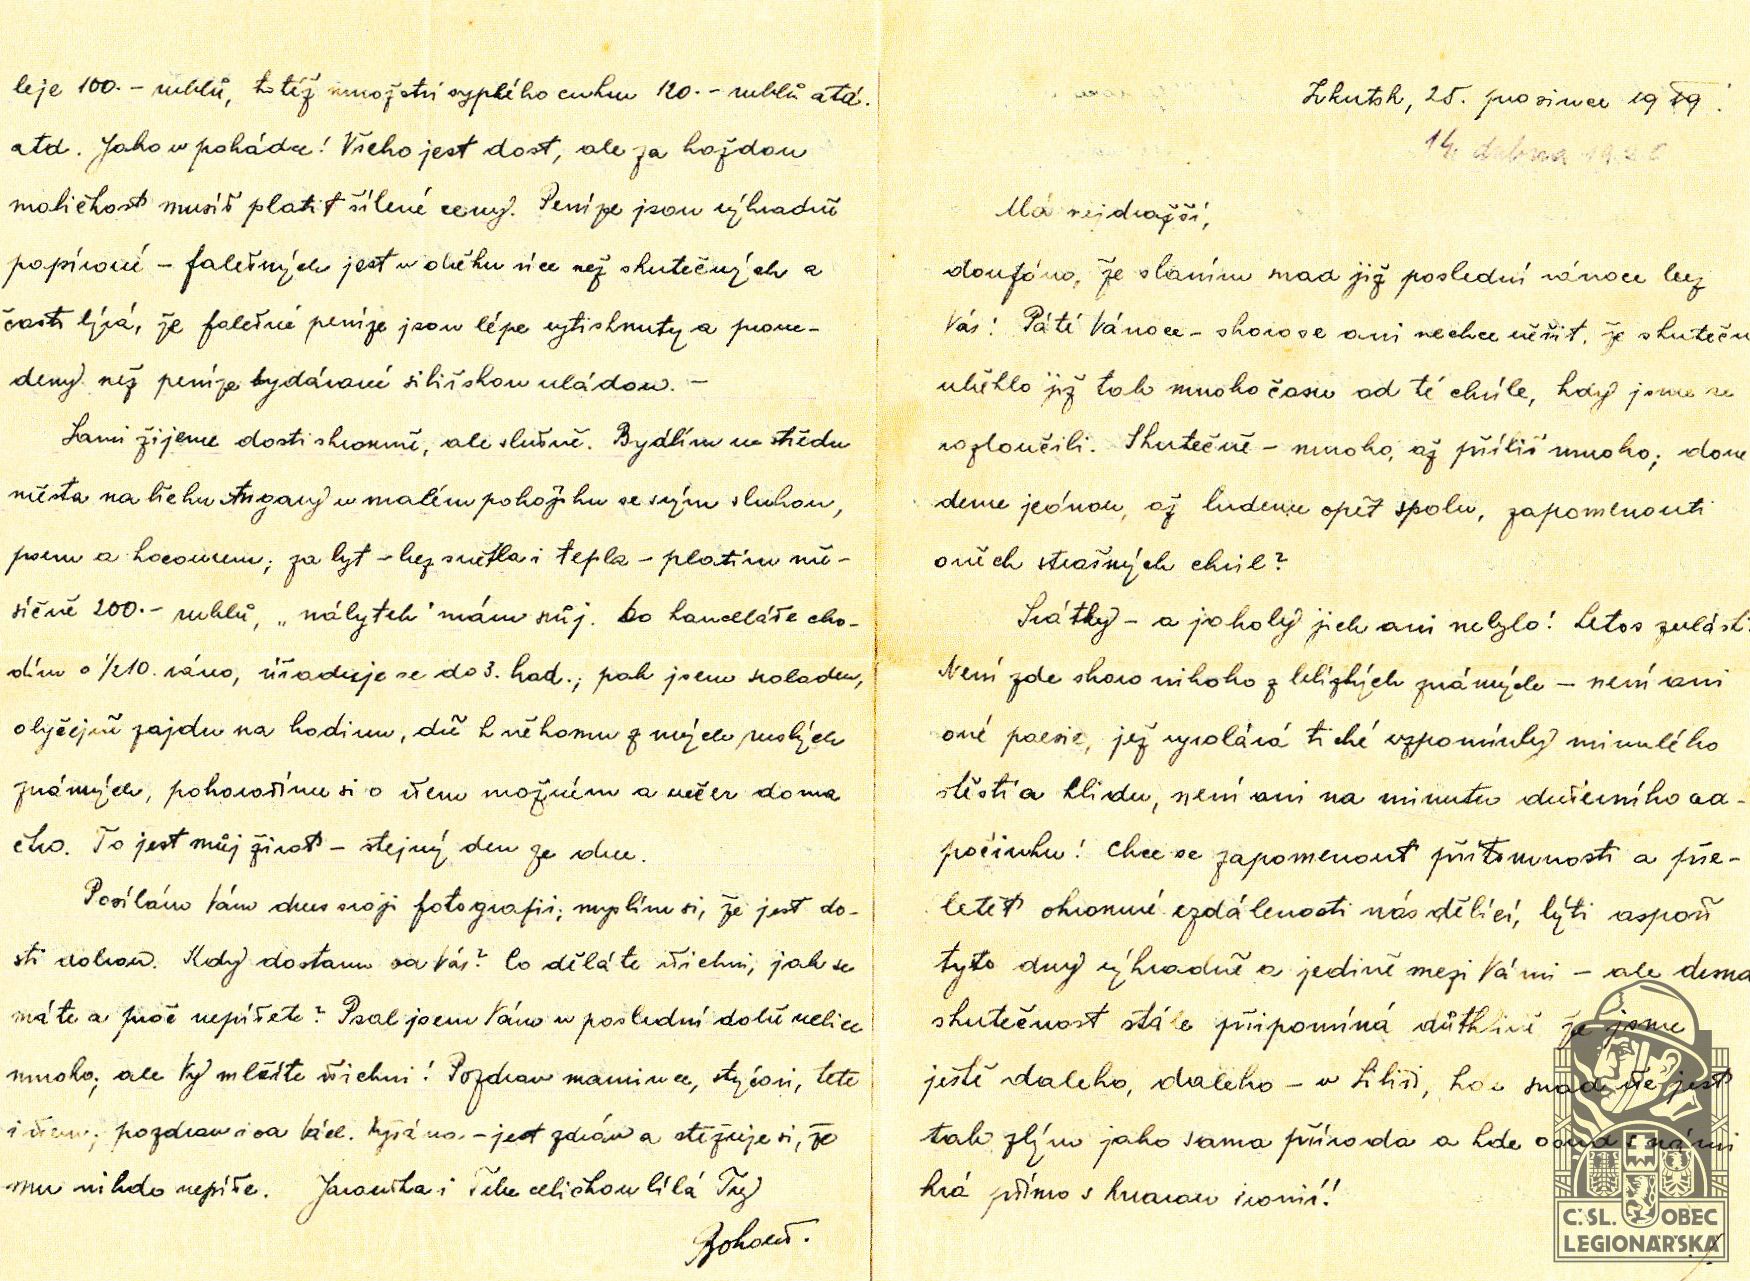 Irkutsk, 25. prosince 1919!
14. dubna 19
Má nejdražší,
doufám, že slavím snad již poslední vánoce bez
Vás! Páté Vánoce – skoro se ani nechce věřit, že skutečn
uběhlo již tak mnoho času od té chvíle, kdy jsme se
rozloučili. Skutečně – mnoho, až příliš mnoho; dove
deme jednou, až budeme opět spolu, zapomenouti
oněch strašných chvil?
Svátky – a jakoby jich ani nebylo! Letos zvlášt
Není zde skoro nikoho z blízkých známých – není ani
oné poesie, jež vyvolává tiché vzpomínky minulého
štěstí a klidu, není ani na minutu duševního od-
počinku! Chce se zapomenout přítomnosti a pře-
letět ohromné vzdálenosti nás dělící, býti aspoň
tyto dny výhradně a jedině mezi Vámi – ale
skutečnost stále připomíná důtklivě že jsme
ještě daleko, daleko – v Sibiři, kde snad vše jest
tak zlým jako sama příroda a kde osud s námi
hrá přímo s krvavou ironií!
leje 100.- rublů, totéž množství sypkého cukru 120.- rublů atd.
atd. Jako v pohádce! Všeho jest dost, ale za každou
maličkost musíš platit šílené ceny. Peníze jsou výhradně
papírové – falešných jest v oběhu více než skutečných a
často bývá, že falešné peníze jsou lépe vytisknuty a prove-
deny než peníze vydávané sibiřskou vládou. –
Sami žijeme dosti skromně, ale slušně. Bydlím ve středu
města na břehu Angary v malém pokojíku se svým sluhou,
psem a kocourem; za byt – bez světla i tepla – platím mě-
síčně 200.- rublů, „nábytek" mám svůj. Do kanceláře cho-
dím o ½10. ráno, úřaduje se do 3. hod.; pak jsem svoboden,
obyčejně zajdu na hodinu, dvě k někomu z mých ruských
známých, pohovoříme si o všem možném a večer doma
čtu. To jest můj život – stejný den ze dne.
Posílám Vám dnes svoji fotografii; myslím si, že jest do-
sti dobrou. Kdy dostanu od Vás? Co děláte všichni, jak se
máte a proč nepíšete? Psal jsem Vám v poslední době velice
mnoho; ale Vy mlčíte všichni! Pozdrav mamince, strýčovi, tetě
i všem; pozdravit od – jest zdráv a stěžuje si, že
mu nikdo nepíše. Jarouška i Tebe celičkou líbá Tvý